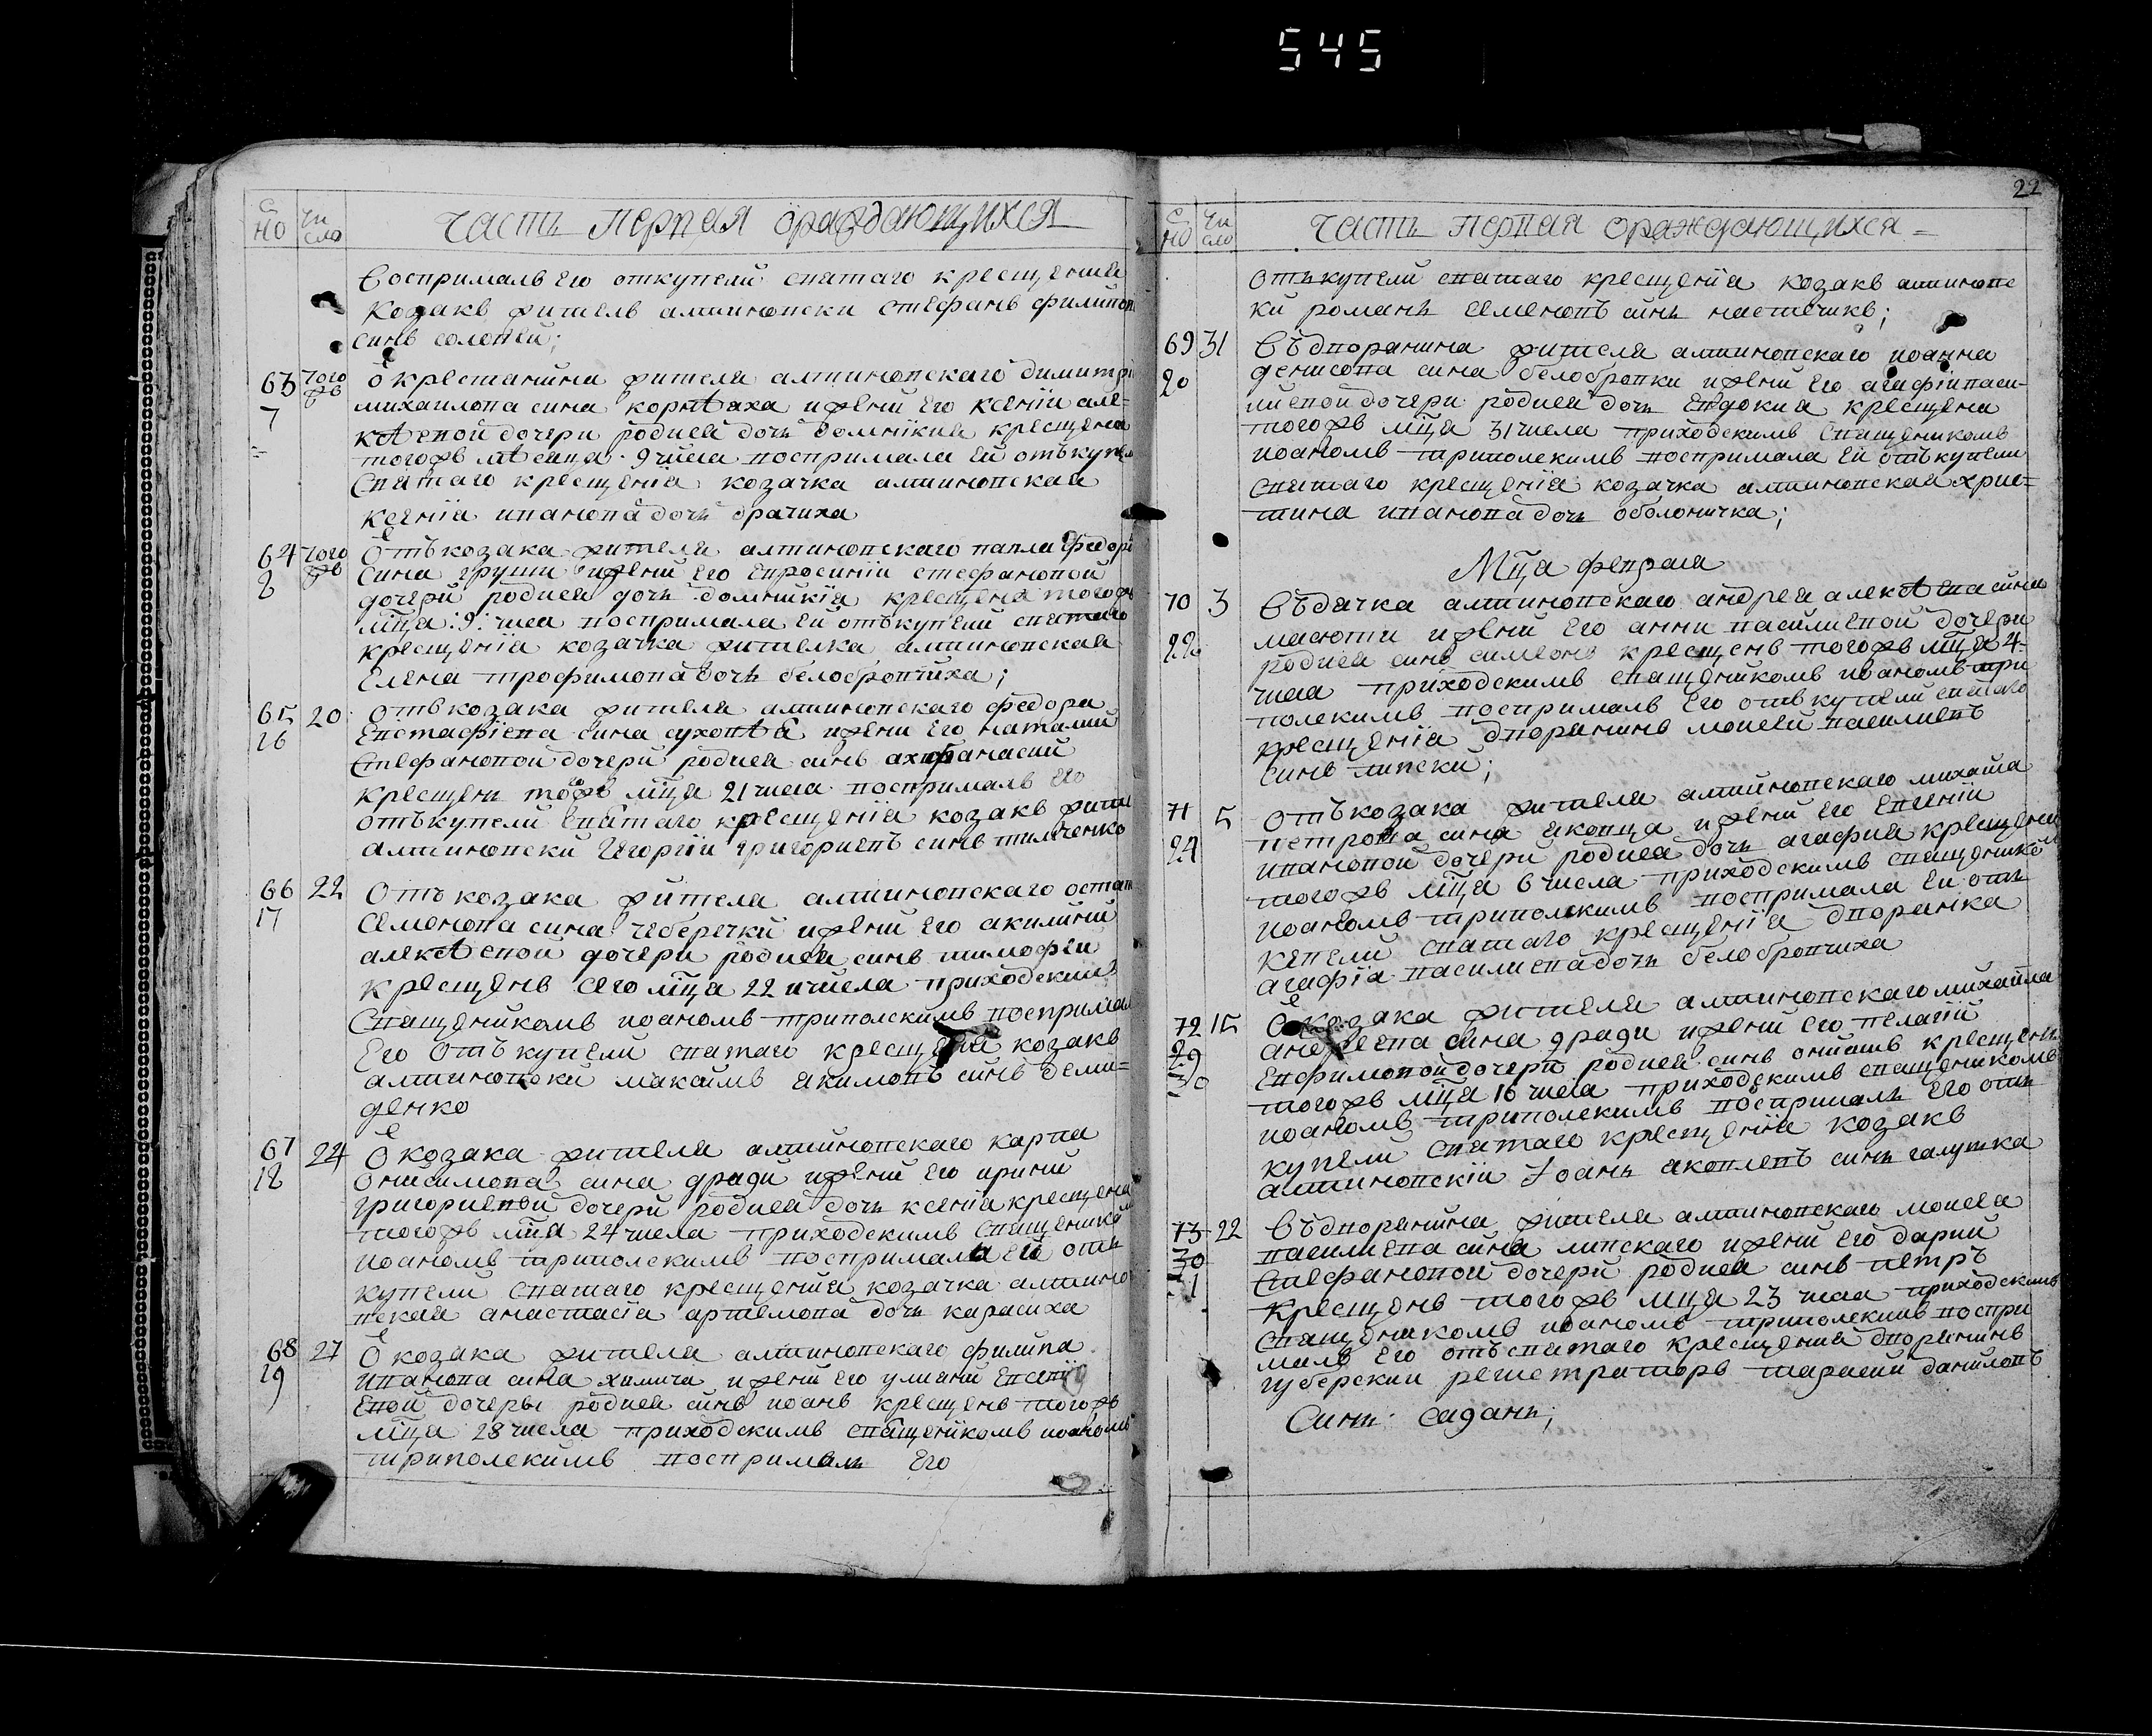 545
22
С НО Чи сло Часть первая ораждающихся
воспрималъ его откупели святаго крещения
козакъ житель алтиновски стефанъ филипов
синъ соловей;
63 того жъ ѿ крестанина жителя алтиновскаго димитри
7 михаилова сина корнѣаха ижени его ксении але=
ксѣевой дочери родися дочь домникия крещена
тогожъ мѣсяца 9 числа восприимала ей отъкупели
святаго крещения козачка алтиновская
ксения иванова дочь драчиха
64 того жъ Отъкозака жителя алтиновскаго павла федоро
8 сина груши ижени его евросинии стефановой
дочери родися дочь домникия крещена тогожъ
мца 9 числа воспримала ей отъкупели святаго
крещения козачка жителка алтиновская
Елена трофимова дочь белобровчиха;
65 20 отъкозака жителя алтиновскаго федора
16 Евстафиева сина суховѣя ижени его наталии
Стефановой дочери родися синъ афанасий
крещенъ тогожъ мца 21 числа воспрималъ его
отъкупели святаго крещения козакъ жите
алтиновски Георгии григориевъ синъ тимченко
66 22 Отъ козака жителя алтиновскаго остап
17 Семенова сина чеберячки ижени его акилини
алексѣевой дочери родися синъ тимофей
крещенъ сего мца 22 числа приходскимъ
Священикомъ иоаномъ триполскимъ воспримал
Его Отъ купели святаго крещения козакъ
алтиновски максимъ якимовъ синъ деми=
денко
67 24 ѿ козака жителя алтиновскаго карпа
18 Онисимова сина дради ижени его ирини
григориевой дочери родися дочь ксения крещена
тогожъ мца 24 числа приходскимъ священиком
иоаномъ триполскимъ воспримала ей отъ
купели святаго крещения козачка алтино
вская анастасия артемова дочь карасиха
68 27 ѿ козака жителя алтиновскаго филипа
19 иванова сина химича ижени его улияни Евсеви
Евой дочери родися синъ иоанъ крещенъ тогожъ
мца 28 числа приходскимъ священикомъ иоаномъ
триполскимъ воспрималъ Его
С НО Чи сло Часть первая ораждающихся
отъкупели святаго крещения козакъ алтиновс
ки романъ семеновъ синъ настечикъ;
69 31 Въдворанина жителя алтиновскаго иоанна
20 денисова сина белобровки ижени его агафии васи-
лиевой дочери родися дочь Евдокия крещена
тогожъ мца 31 числа приходскимъ Священикомъ
иоаномъ триполскимъ воспримала ей отъкупели
святаго крещения козачка алтиновская хрис=
тина иванова дочь оболоничка;
Мца февраля
70 3 Въдячка алтиновскаго андрея алексѣева сина
22 масюти ижени его анни василиевой дочери
родися синъ симеонъ крещенъ тогожъ мца 4=
числа приходскимъ священикомъ иоаномъ три
полскимъ воспрималъ его отъкупели святаго
крещения дворянинъ моисей василиевъ
синъ липски;
71 5 Отъкозака жителя алтиновскаго михаила
24 петрова сина яковца ижени его Евгении
ивановой дочери родися дочь агафия крещена
тогожъ мца 6 числа приходскимъ священиком
иоаномъ триполскимъ воспримала ей отъ
купели святаго крещения дворянка
агафия василиева дочь белобровчиха
72 15 ѿ козака жителя алтиновскаго михаила
29 андреева сина дради ижени его пелагии
30 Евфимовой дочери родися синъ онисимъ крещенъ
тогожъ мца 16 числа приходскимъ священикомъ
иоаномъ триполскимъ воспрималъ Его отъ
купели святаго крещения козакъ
алтиновский Иоанъ яковлевъ синъ галушка
73 22 Въдворянина жителя алтиновскаго моисея
30 василиева сина липскаго ижени его дарии
Стефановой дочери родися синъ петръ
крещенъ тогожъ мца 23 числа приходскимъ
священикомъ иоаномъ триполскимъ воспри
малъ Его отъсвятаго крещения дворянинъ
губерский регистраторъ тарасий даниловъ
Синъ Садань;